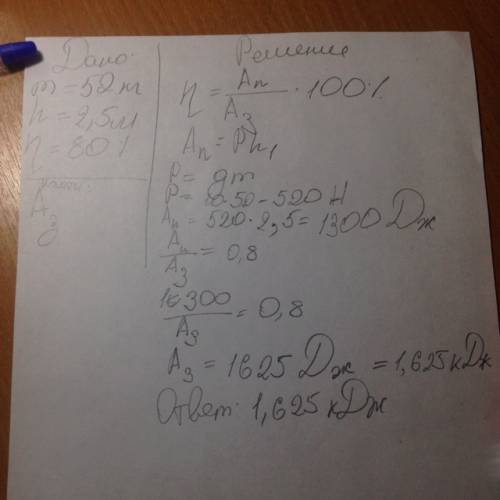 Дано:
m = 52 кг
h = 2,5 м
η = 80%
найти:
Aз
Решение
η = Aп/Aз · 100%
Aп = Ph,
P = gm
P = 10·50 = 520 Н
Aп = 520·2,5 = 1300 Дж
Aп/Aз = 0,8
1300/Aз = 0,8
Aз = 1625 Дж = 1,625 кДж
Ответ: 1,625 кДж